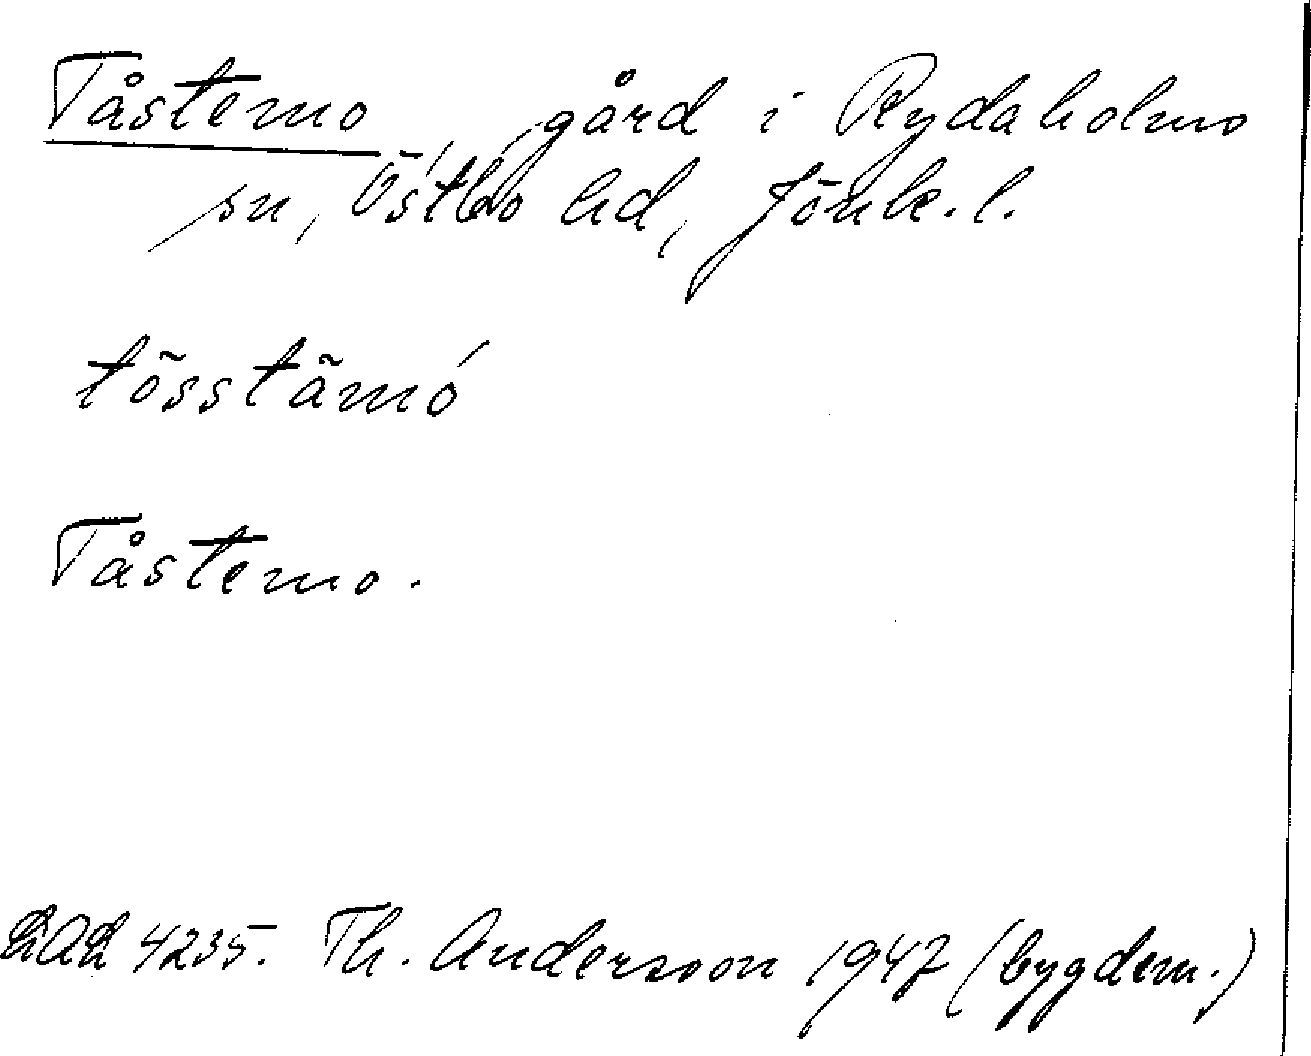 Tåstemo, gård i Rydaholms
sn, Östbo hd, Jönk. l.
tösstämó
Tåstemo.
LAL 4235. Th. Andersson 1947 (bygdem.)